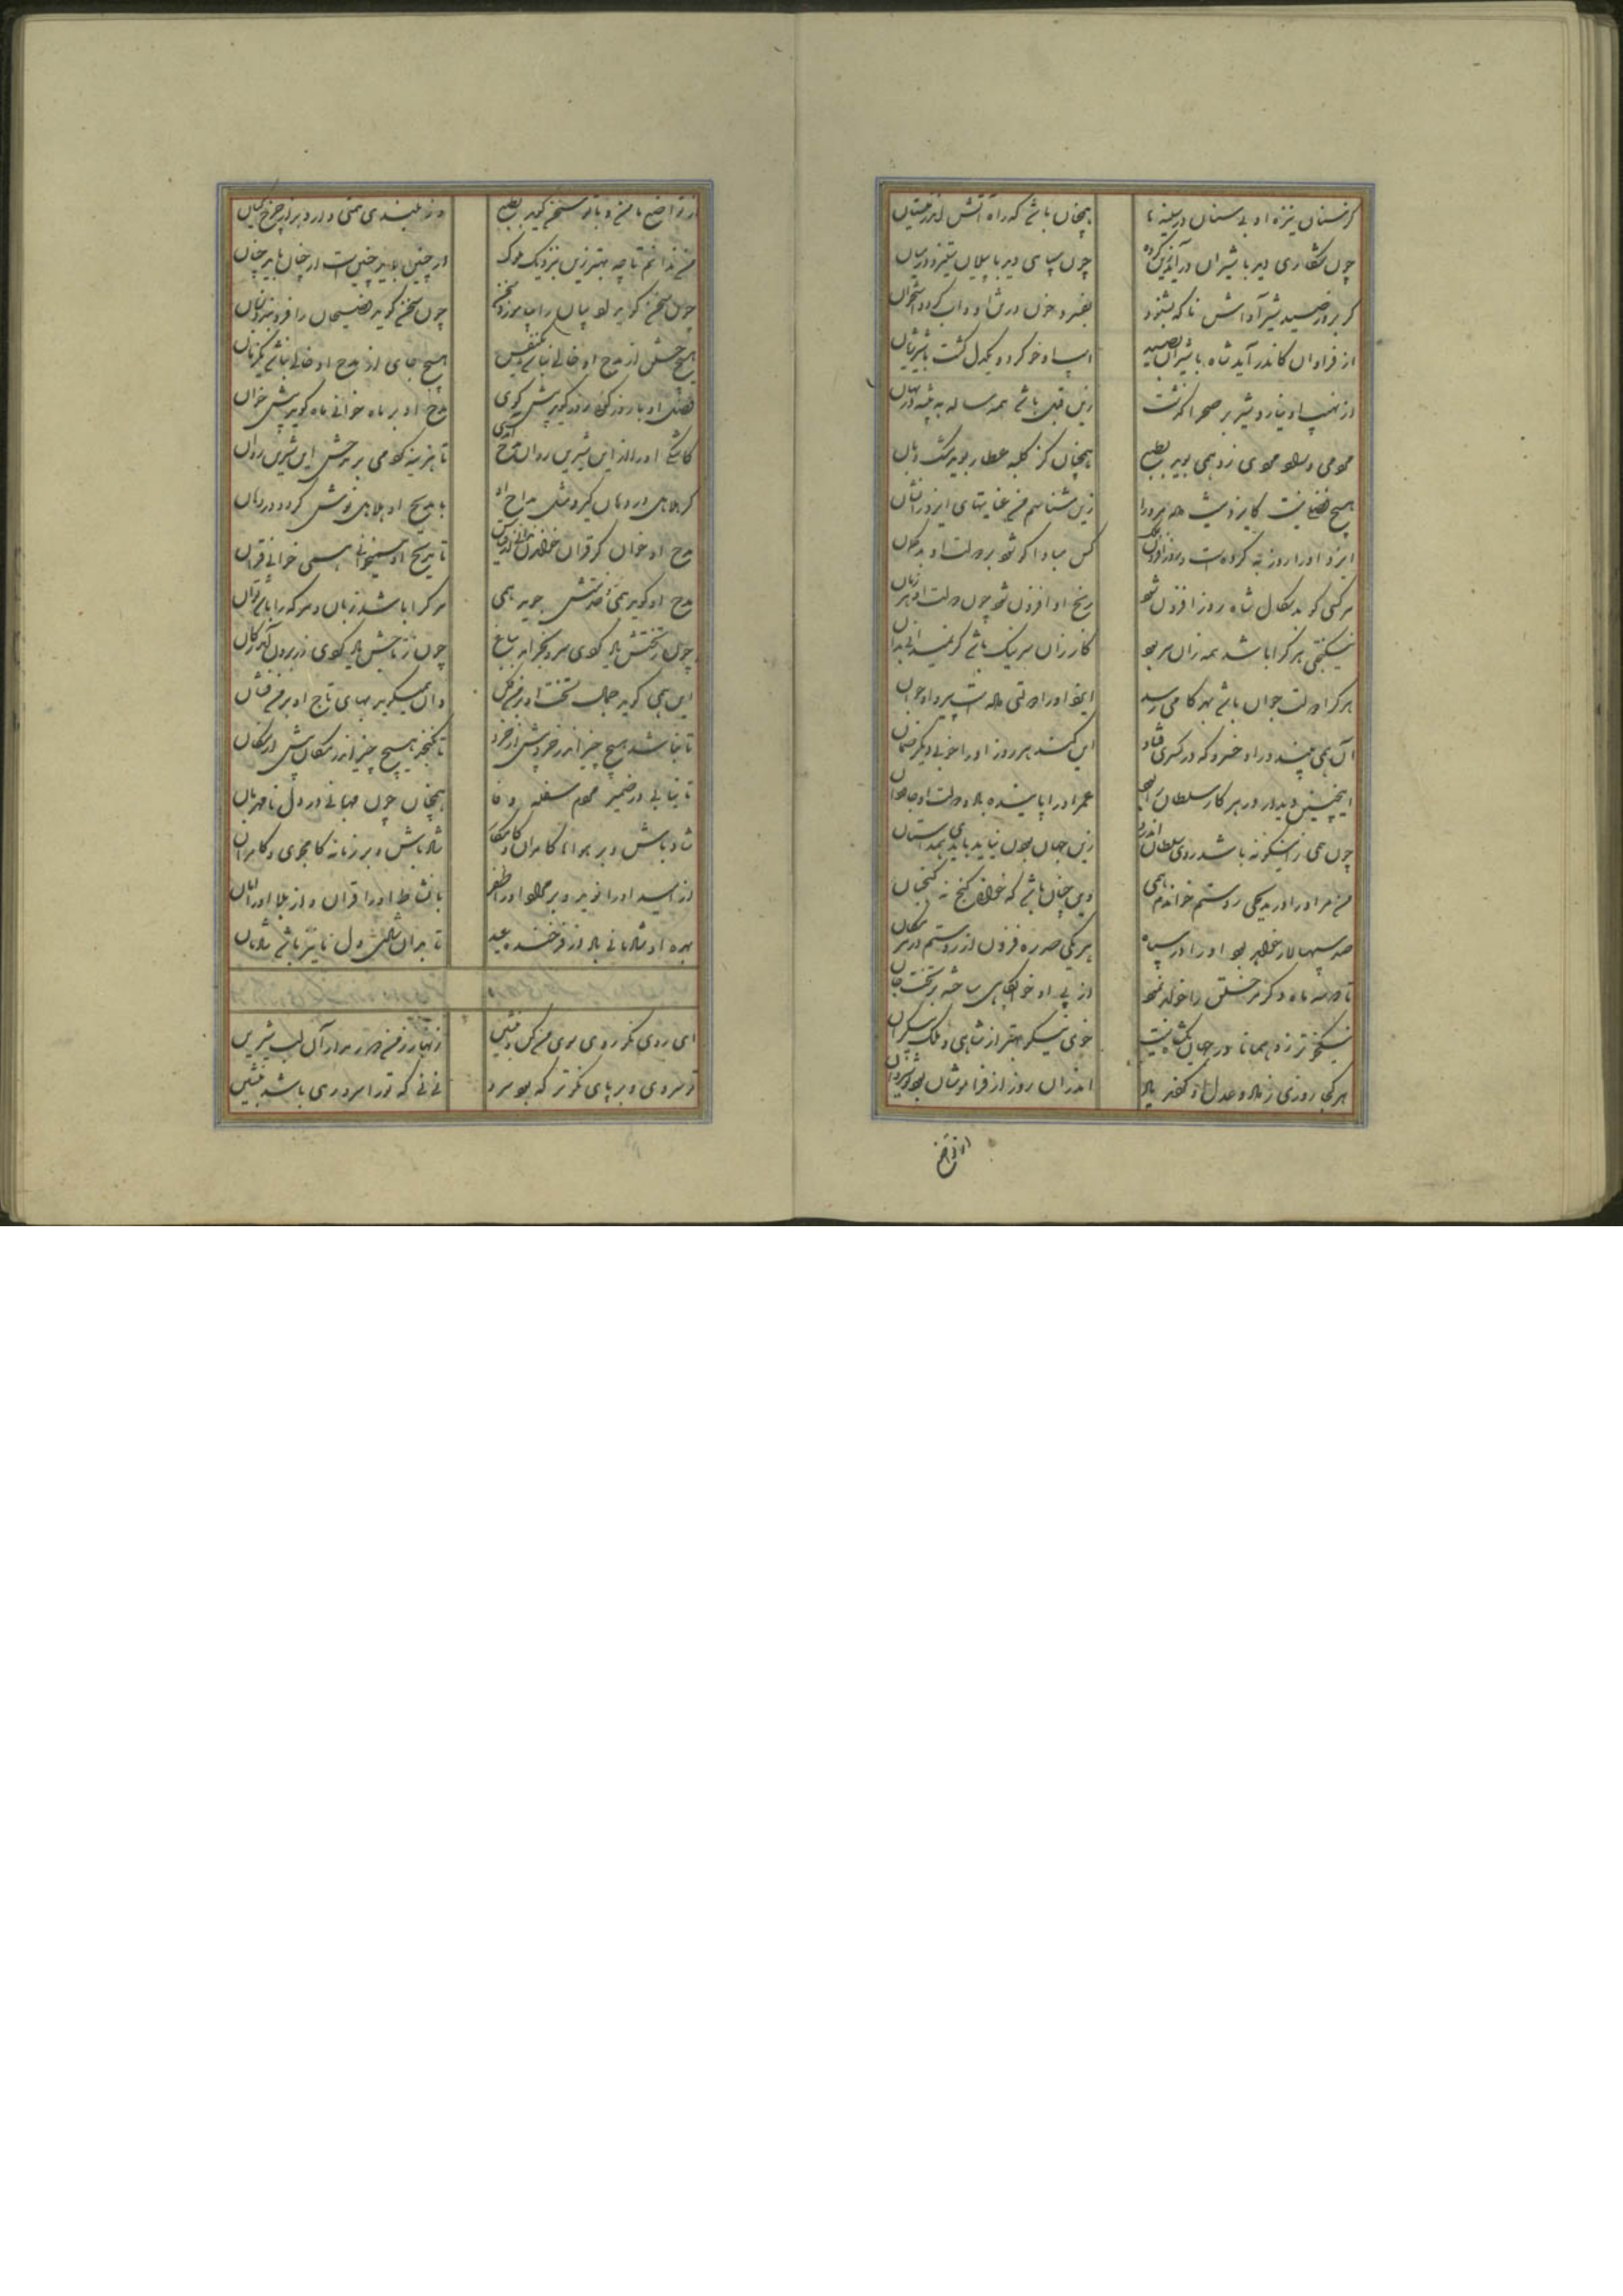 کر سنان نیزه او بی سنان در سینه ها همچنان باشد که راه آتش اندر نیستان
چون شکاری دید با شیران درآید کرده چون سپاهی دید با پیلان ستیزد در میان
کر بروز صید شیر آواش ناکه بشنود بفسرد خون در تن او و آب گردد استخوان
از فراوان کاندر آید شاه با شیران بصید اسب او خو کرد و یکدل گشت با شیر ژیان
از نهیب او نیارد شیر بر صحرا گذشت زین قبل باشد همه ساله به بیشه در نهان
مردمی و مردمی زو همی بوید بطبع همچنان کز کلبه عطار بوید مشک و بان
هیچ فضلی نیست کایزد بیشتر داده مر او را زین شناسم من عنایتهای ایزد را نشان
ایزد او را روز به کرده است و روز افزون کس مبادا کو شود بر دولت او بدگمان
هر کسی کو بدسگال شاه روز افزون شود رنج او افزون شود چون دولت او هر زمان
نیکبختی هر کرا باشد همه زان سر بود کار زان سر نیک باشد
هر کرا دولت جوان باشد بهر کامی رسد ایزد او را دولتی داده است پیر او جوان
آن همی بیند در او خسرو که در کسری قباد این کند هر روز او را خوبی دیگر ضمان
اینچنین دیدار در هر کار سلطان را بود عمر او را پاینده باد و دولت او جاودان
چون همی زینگونه باشد روی سلطان اندرو زین جهان چون نیابد باید ستان
من مر او را در مدیحی روستم خواندم همی وین چنان باشد که خوانی گنج نه گنجدان
صد سپهسالار خواهد بود او را در سپاه هر یکی صد ره فزون از روستم در هر مکان
تا دو سه ماه دگر مر خویشتن را خواند شه از پی او خوابگاهی ساخته بر تخت خان
نیکخو تر زو همانا در جهان یک شاه نیست خوی نیکو بهتر از شاهی و ملک بیکران
هر کجا روزی ز داد و عدل او گفتند یاد اندران روز از فرامشان بود نوشیروان
از تواضع
از تواضع با من و با تو سخن گوید بطبع وز بلندی همتی دارد برابر چرخ کیان
من ندانم تا چه بهتر زین بنزدیک ملوک این چنین باید چنین است ار چنان باید چنان
چون سخن گوید ادیبان را بیاموزد سخن چون سخن گوید فصیحان را فرو بندد زبان
هیچ جنس از مدح او خالی نباشد یکنفس هیچ جای از مدح او خالی نباشد یکزمان
فضل او با روز گوی روز گوید بیش گوی مدح او بر ماه خوانی ماه گوید بیش خوان
کاشکی او را از این شیرین روان مدح آمدی تا هزینه کردمی بر مدحش این شیرین روان
گر هلاهل در دهان گیرد مثل مداح او با مدیح او هلاهل نوش گردد در دهان
مدح او خوان گر قران خواهی خواند تا مدیح او نخوانی همی خوانی قران
مدح او گوید همی خدمتش جوید همی هر کرا باشد زبان و هر که را باشد توان
چون ز تختش یاد گوی سرو بگرازد بباغ چون ز تاجش یاد گوی زر برون آید ز کان
این همی گوید جمال تخت او بر من فکن وان همی گوید بهای تاج او بر من فشان
تا نباشد هیچ چیز اندر خرد بیش از خرد تا نگنجد هیچ چیز اندر مکان بیش از مکان
تا نیابی در ضمیر مردم سفله وفا همچنان چون مهربانی در دل نامهربان
شاد باش و بر هوای کامران و کامکار شاد باش و بر زمانه کامجوی و کامران
از امید او را نوید و بر مراد او را ظفر با نشاط او را قران و از بلا او را امان
بهره او شادمانی باد از فرخنده عید تا بدان شادی دل ما نیز باشد شادمان
ای روی نکو روی سوی من کن و بنشین زنهار ز من دور مدار آن لب شیرین
تو سروی و بر پای نکوتر که بود سرو نی نی که تو را سرو رهی باشد بنشین